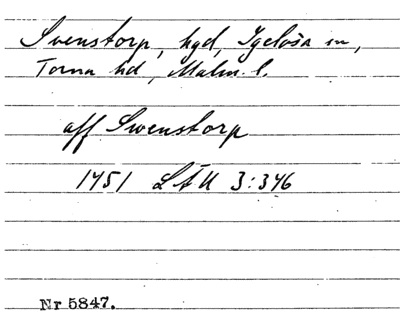 Svenstorp, hgd, Igelösa sn,
Torna hd, Malm. l.
aff Swenstorp
1751 LÄU 3:346
Nr 5847.